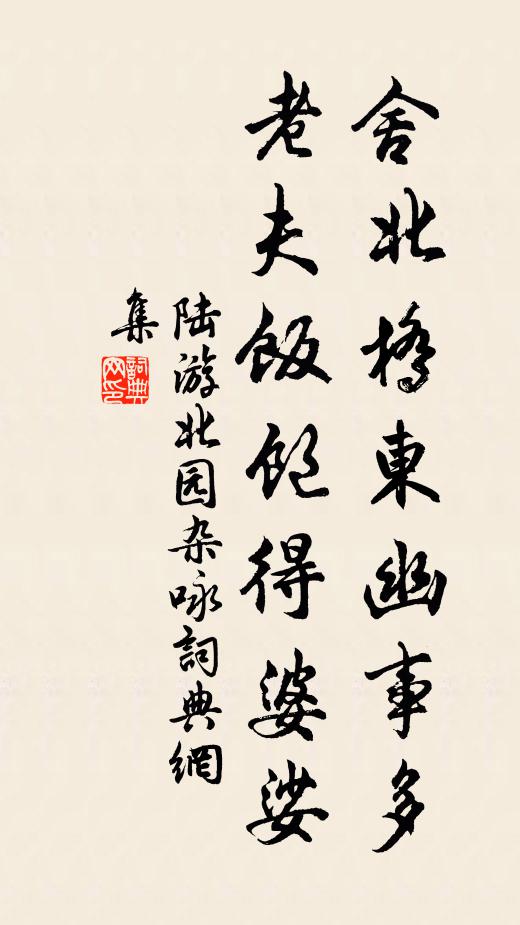 舍北橋東幽事多
老夫飯飽得婆娑
陆游北园杂咏詞典網
集
詞典网印